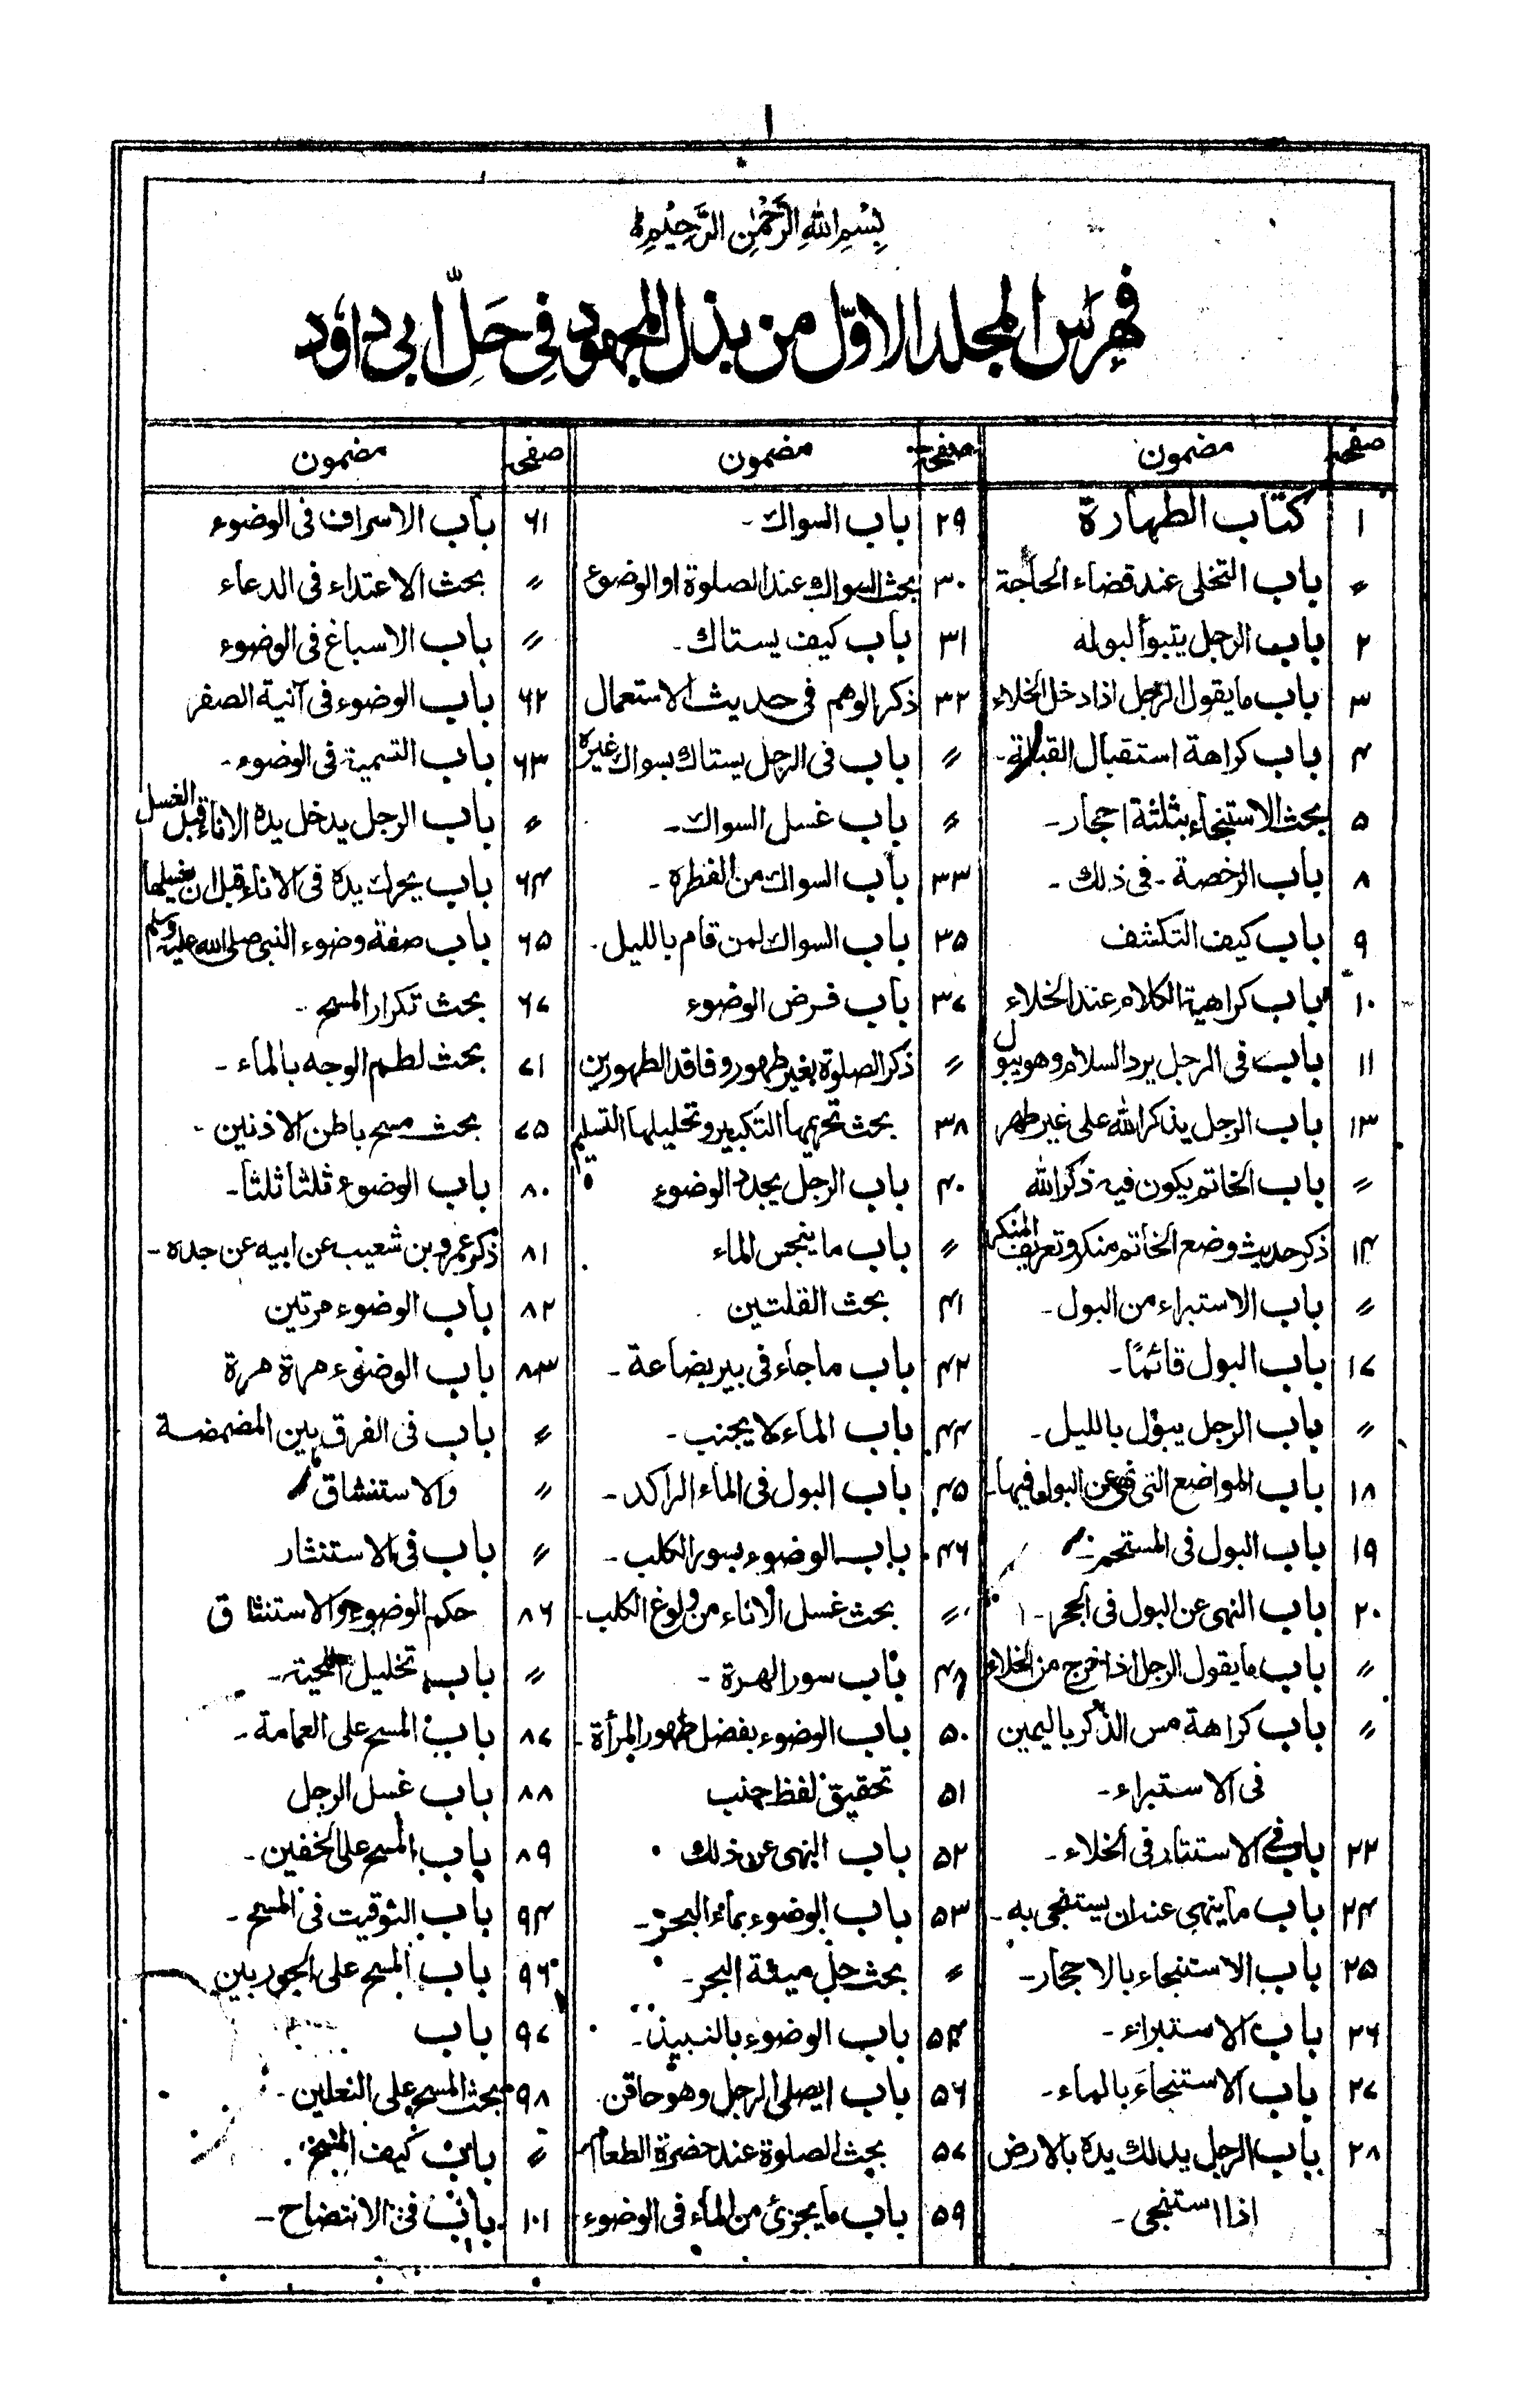 ١
بِسْمِ اللهِ الرَّحْمٰنِ الرَّحِيْمِ
فهرس المجلد الاوّل من بذل المجهود في حَلِّ ابي داؤد
صفحہ مضمون
١ كتاب الطهارة
〃 باب التخلى عند قضاء الحاجة
٢ باب الرجل يتبوأ لبوله
٣ باب ما يقول الرجل اذا دخل الخلاء
۴ باب كراهة استقبال القبلة-
۵ بحث الاستنجاء بثلثة احجار-
٨ باب الرخصة - فى ذلك -
٩ باب كيف التكشف
١٠ باب كراهية الكلام عند الخلاء
١١ باب فى الرجل يرد السلام وهو يبول
١٣ باب الرجل يذكر الله على غير طهر
〃 باب الخاتم يكون فيه ذكر الله
١۴ ذكر حديث وضع الخاتم منكر وتعريف المنكر
〃 باب الاستبراء من البول-
١٧ باب البول قائمًا-
〃 باب الرجل يبول بالليل-
١٨ باب المواضع التى نهى عن البول فيها-
١٩ باب البول فى المستحم-
٢٠ باب النهى عن البول فى الجحر-
〃 باب ما يقول الرجل اذا خرج من الخلاء
〃 باب كراهة مس الذكر باليمين
فى الاستبراء-
٢٢ باب في الاستتار فى الخلاء-
٢۴ باب ما ينهى عنه ان يستنجى به-
٢۵ باب الاستنجاء بالاحجار-
٢۶ باب الاستبراء-
٢٧ باب الاستنجاء بالماء-
٢٨ باب الرجل يدلك يده بالارض
اذا استنجى-
صفحہ مضمون
٢٩ باب السواك-
٣٠ بحث السواك عند الصلوة او الوضوء
٣١ باب كيف يستاك-
٣٢ ذكر الوهم فى حديث الاستعمال
〃 باب فى الرجل يستاك بسواك غيره
〃 باب غسل السواك-
٣٣ باب السواك من الفطرة-
٣۵ باب السواك لمن قام بالليل-
٣٧ باب فرض الوضوء
〃 ذكر الصلوة بغير طهور و فاقد الطهورين
٣٨ بحث تحريمها التكبير وتحليلها التسليم
۴٠ باب الرجل يجدد الوضوء
〃 باب ما ينجس الماء
۴١ بحث القلتين
۴٢ باب ما جاء فى بير بضاعة-
۴۴ باب الماء لا يجنب-
۴۵ باب البول فى الماء الراكد-
۴۶ باب الوضوء بسور الكلب-
〃 بحث غسل الاناء من ولوغ الكلب-
۴٨ باب سور الهرة-
۵٠ باب الوضوء بفضل طهور المرأة-
۵١ تحقيق لفظ جنب
۵٢ باب النهى عن ذلك
۵٣ باب الوضوء بماء البحر-
〃 بحث حل ميتة البحر-
۵۴ باب الوضوء بالنبيذ-
۵۶ باب ايصلى الرجل وهو حاقن
۵٧ بحث الصلوة عند حضرة الطعام
۵٩ باب ما يجزئ من الماء فى الوضوء
صفحہ مضمون
۶١ باب الاسراف فى الوضوء
〃 بحث الاعتداء فى الدعاء
〃 باب الاسباغ فى الوضوء
۶٢ باب الوضوء فى آنية الصفر
۶٣ باب التسمية فى الوضوء-
〃 باب الرجل يدخل يده الاناء قبل الغسل
۶۴ باب يحرك يده فى الاناء قبل ان يغسلها
۶۵ باب صفة وضوء النبى صلى الله عليه وسلم
۶٧ بحث تكرار المسح-
٧١ بحث لطم الوجه بالماء-
٧۵ بحث مسح باطن الاذنين-
٨٠ باب الوضوء ثلثا ثلثا-
٨١ ذكر عمرو بن شعيب عن ابيه عن جده-
٨٢ باب الوضوء مرتين
٨٣ باب الوضوء مرة مرة
〃 باب فى الفرق بين المضمضة
〃 والاستنشاق
〃 باب فى الاستنثار
٨۶ حكم الوضوء والاستنشاق
〃 باب تخليل اللحية-
٨٧ باب المسح على العمامة-
٨٨ باب غسل الرجل
٨٩ باب المسح على الخفين-
٩۴ باب التوقيت فى المسح-
٩۶ باب المسح على الجوربين
٩٧ باب
٩٨ بحث المسح على النعلين-
〃 باب كيف المسح
١٠١ باب فى الانتضاح-